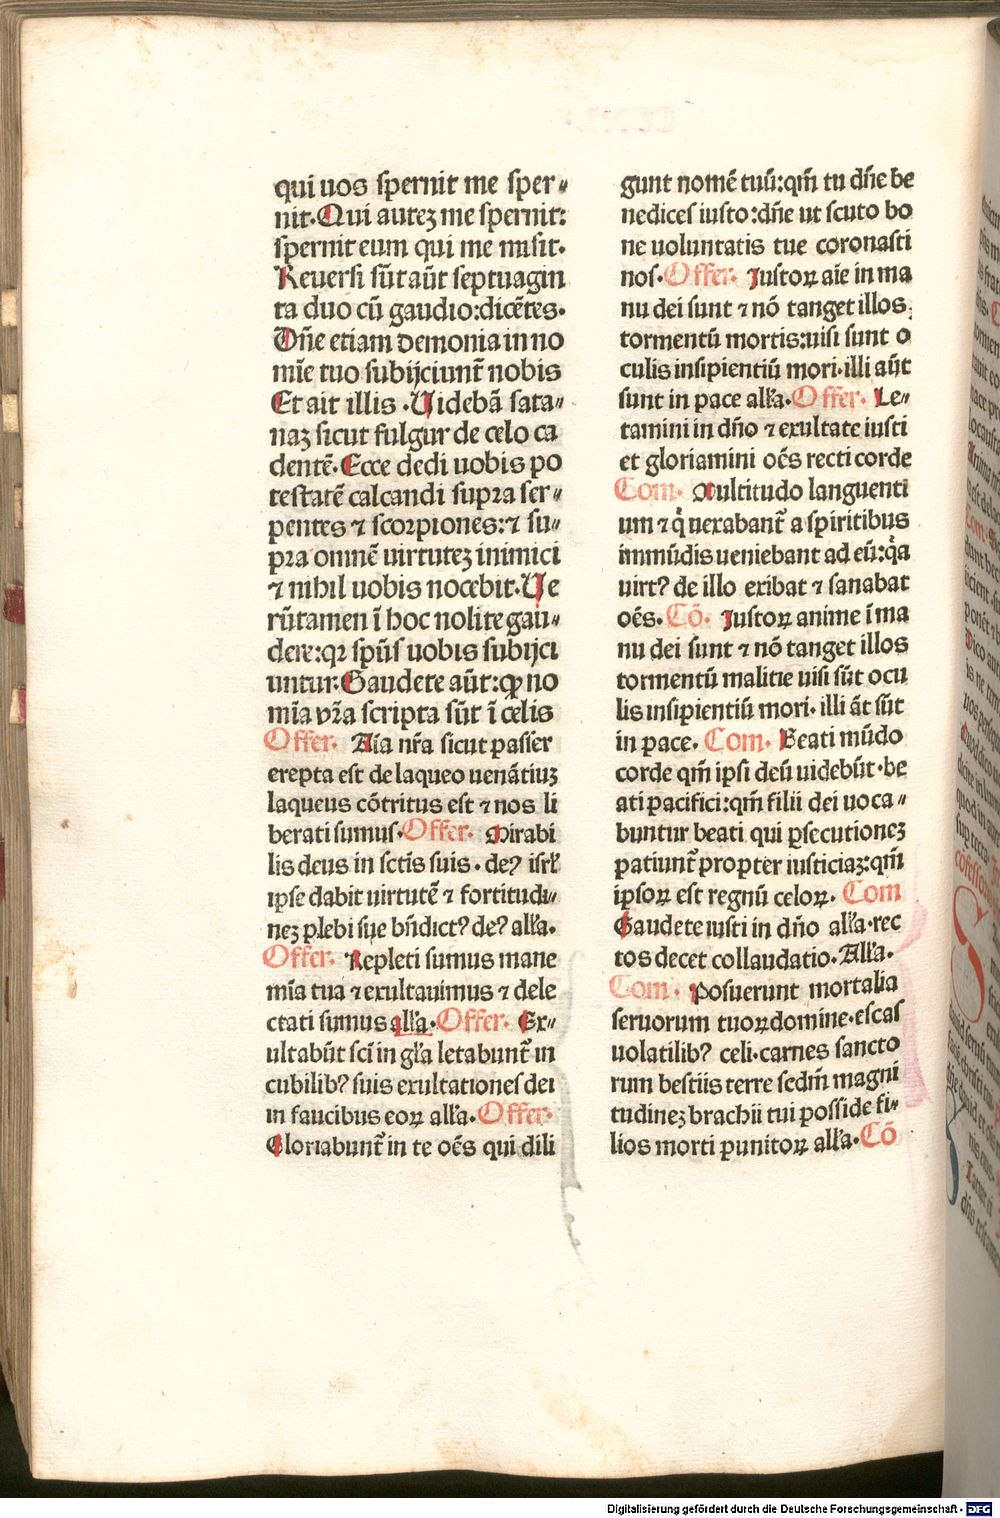 qui uos spernit me sper⸗
nit. Qui autez me spernit:
spernit eum qui me misit.
Reuersi sūt aūt septuagin
ta duo cū gaudio: dicētes.
Dñe etiam demonia in no
mīe tuo subijciunt̄ nobis
Et ait illis. Uidebā sata⸗
naz sicut fulgur de celo ca
dentē. Ecce dedi uobis po
testatē calcandi supra ser⸗
pentes ⁊ scorpiones: ⁊ su⸗
pra omnē uirtutez inimici
⁊ nihil uobis nocebit. Ue
rūtamen ī hoc nolite gau⸗
dere: qꝛ spūs uobis subijci
untur. Gaudete aūt: ꝙ no
mīa vr̄a scripta sūt ī celis
Offer. Aīa nr̄a sicut passer
erepta est de laqueo uenātiuz
laqueus cōtritus est ⁊ nos li
berati sumus. Offer. Mirabi
lis deus in sctīs suis. de? isrl̄
ipse dabit uirtutē ⁊ fortitudi⸗
nez plebi sue bn̄dict? de? all̄a.
Offer. Repleti sumus mane
mīa tua ⁊ exultauimus ⁊ dele
ctati sumus all̄a. Offer. Ex⸗
ultabūt scī in gl̄a letabunt̄ in
cubilib? suis exultationes dei
in faucibus eoꝝ all̄a. Offer.
Gloriabunt̄ in te oēs qui dili
gunt nomē tuū: qm̄ tu dñe be
nedices iusto: dñe ut scuto bo
ne uoluntatis tue coronasti
nos. Offer. Iustoꝝ aīe in ma
nu dei sunt ⁊ nō tanget illos
tormentū mortis: uisi sunt o
culis insipientiū mori. illi aūt
sunt in pace all̄a. Offer. Le⸗
tamini in dño ⁊ exultate iusti
et gloriamini oēs recti corde
Com. Multitudo languenti
um ⁊ qͥ uexabant̄ a spiritibus
immūdis ueniebant ad eū: qᷓa
uirt? de illo exibat ⁊ sanabat
oēs. Cō. Iustoꝝ anime ī ma
nu dei sunt ⁊ nō tanget illos
tormentū malitie uisi sūt ocu
lis insipientiū mori. illi āt sūt
in pace. Com. Beati mūdo
corde qm̄ ipsi deū uidebūt. be
ati pacifici: qm̄ filii dei uoca⸗
buntur beati qui ꝑsecutionez
patiunt̄ propter iusticiaz: qm̄
ipsoꝝ est regnū celoꝝ. Com
Gaudete iusti in dño all̄a. rec
tos decet collaudatio. All̄a.
Com. Posuerunt mortalia
seruorum tuoꝝ domine. escas
uolatilib? celi. carnes sancto
rum bestiis terre sedm̄ magni
tudinez brachii tui posside fi⸗
lios morti punitoꝝ all̄a. Cō
Digitalisierung gefördert durch die Deutsche Forschungsgemeinschaft - DFG